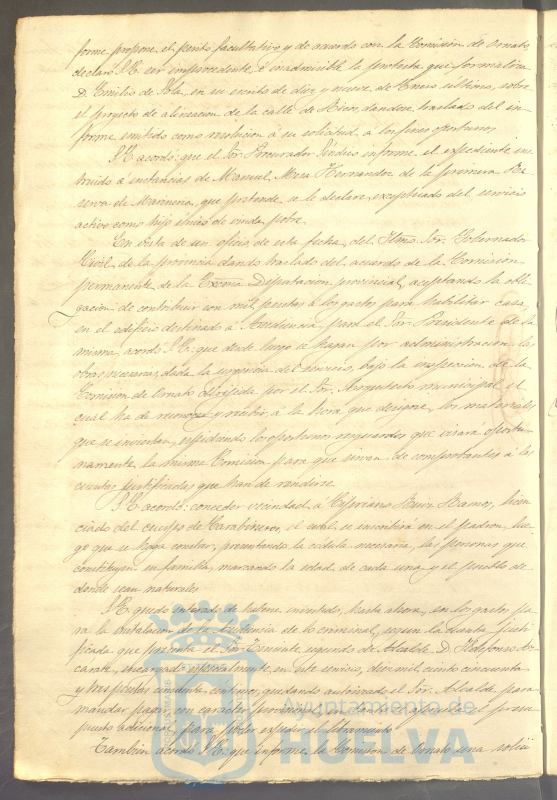 forme propone el perito facultativo y de acuerdo con la Comision de Ornato
declaró S.E. ser improcedente é inadmisible la protesta que formaliza
D. Emilio de Sola, en su escrito de diez y nueve de Enero último, sobre
el proyecto de alineacion de la calle de Ricos, dandose traslado del in-
forme emitido como resolucion á su solicitud, a los fines oportunos
S.E. acordó: que el Sor. Procurador Síndico informe el expediente ins-
truido á instancias de Manuel Mora Hernandez de la primera Re-
serva de Marineria, que pretende se le declare exceptuado del servicio
activo como hijo único de viuda pobre
En vista de un oficio de esta fecha, del Iltmo. Sor. Gobernador
Civil de la provincia dando traslado del acuerdo de la Comision
permanente de la Excma. Diputacion provincial, aceptando la obli-
gacion de contribuir con mil pesetas á los gastos para habilitar casa,
en el edificio destinado á Audiencia, para el Sor. Presidente de la
misma, acordó S.E. que desde luego se hagan por administracion las
obras necesarias, dada la urgencia del servicio, bajo la inspeccion de la
Comision de Ornato dirigida por el Sor. Arquitecto municipal el
cual ha de reconocer y recibir, á la hora que designe, los materiales
que se inviertan, expidiendo los oportunos resguardos que visara oportu-
namente la misma Comision para que sirvan de comprobantes á las
cuentas justificadas que han de rendirse.
S.E. acordó: conceder vecindad á Cipriano Ruiz Ramos, licen-
ciado del cuerpo de Carabineros, el cual se inscribirá en el padron, lue-
go que se haga constar, presentando la cédula necesaria, las personas que
constituyen su familia, marcando la edad de cada una y el pueblo de
donde sean naturales
S.E. quedó enterado de haberse invertido, hasta ahora, en los gastos pa-
ra la instalacion de la Audiencia de lo criminal, segun la cuenta justi-
ficada que presenta el Sor. Teniente segundo de Alcalde D. Ildefonso Az-
carate, encargado especialmente, en este servicio, diez mil ciento cincuenta
y tres pesetas cincuenta centimos, quedando autorizado el Sor. Alcalde para
mandar pagar, con caracter provisional, se apruebe el presu-
puesto adicional, para poder expedir el libramiento
Tambien acordó S.E. que informe la Comision de Ornato una solici-
Ayuntamiento de
HUELVA